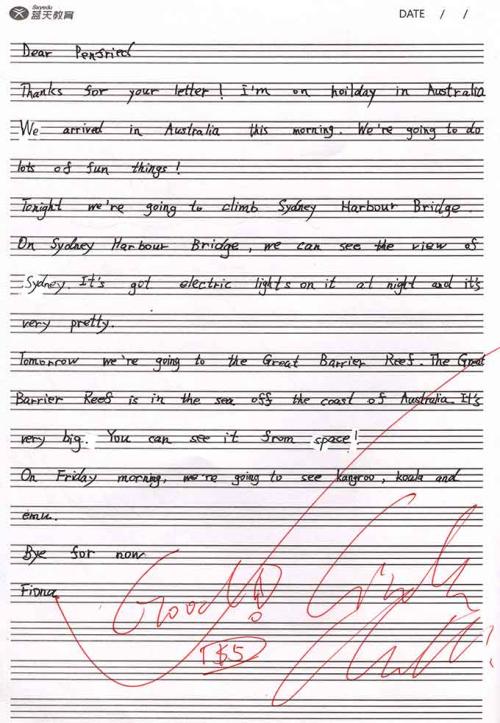 Skyedu
蓝天教育
DATE / /
Dear Penfried
Thanks for your letter! I'm on hoilday in Australia
We arrived in Australia this morning. We're going to do
lots of fun things!
Tonight we're going to climb Sydney Harbour Bridge.
On Sydney Harbour Bridge, we can see the view of
Sydney. It's got electric lights on it at night and it's
very pretty.
Tomorrow we're going to the Great Barrier Reef. The Great
Barrier Reef is in the sea off the coast of Australia. It's
very big. You can see it from space!
On Friday morning, we're going to see kangroo, koala and
emu.
Bye for now
Fiona
Good!